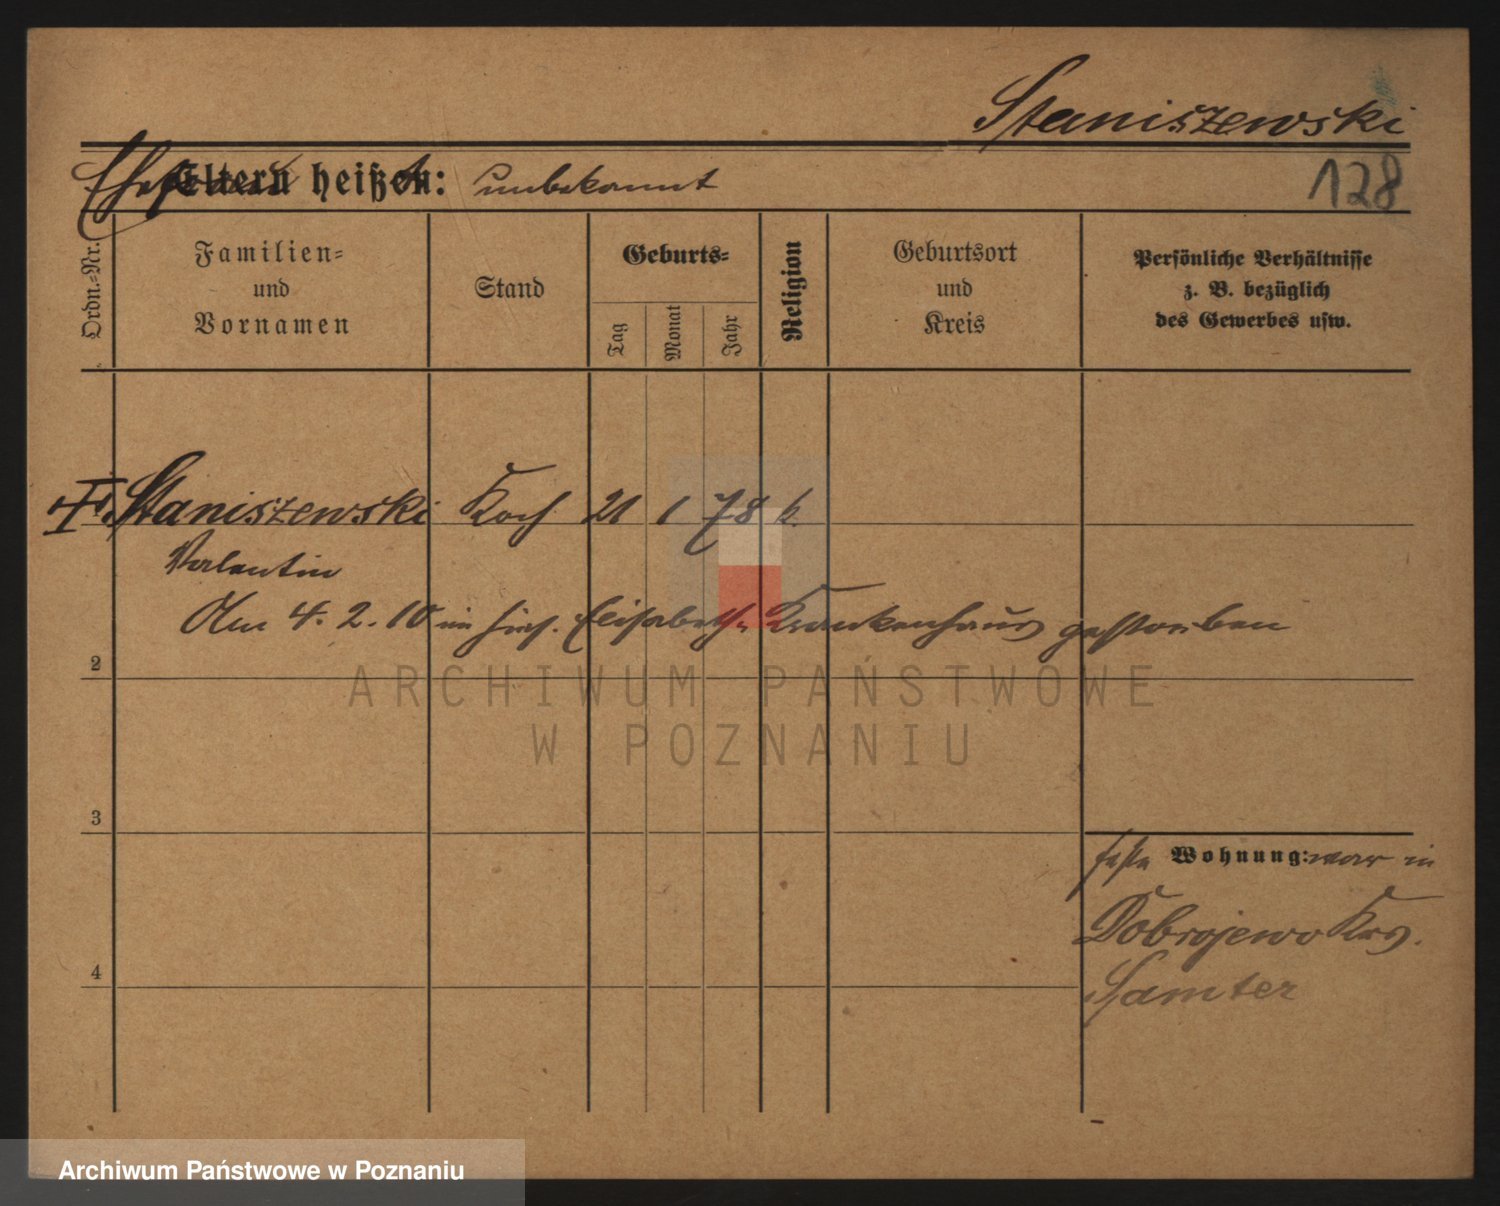 Staniszewski
128
Ehefrau Eltern heißen: unbekannt
Ordn.-Nr.
Familien-
und
Vornamen
Stand
Geburts-
Tag
Monat
Jahr
Religion
Geburtsort
und
Kreis
Persönliche Verhältnisse
z. B. bezüglich
des Gewerbes usw.
Staniszewski Koch 21 1 78 k.
Valentin
Am 4. 2. 10 im hies. Elisabeth- Krankenhaus gestorben
2
3
4
feste Wohnung: war in
Dobrojewo Krs.
Samter
ARCHIWUM PAŃSTWOWE
W POZNANIU
Archiwum Państwowe w Poznaniu